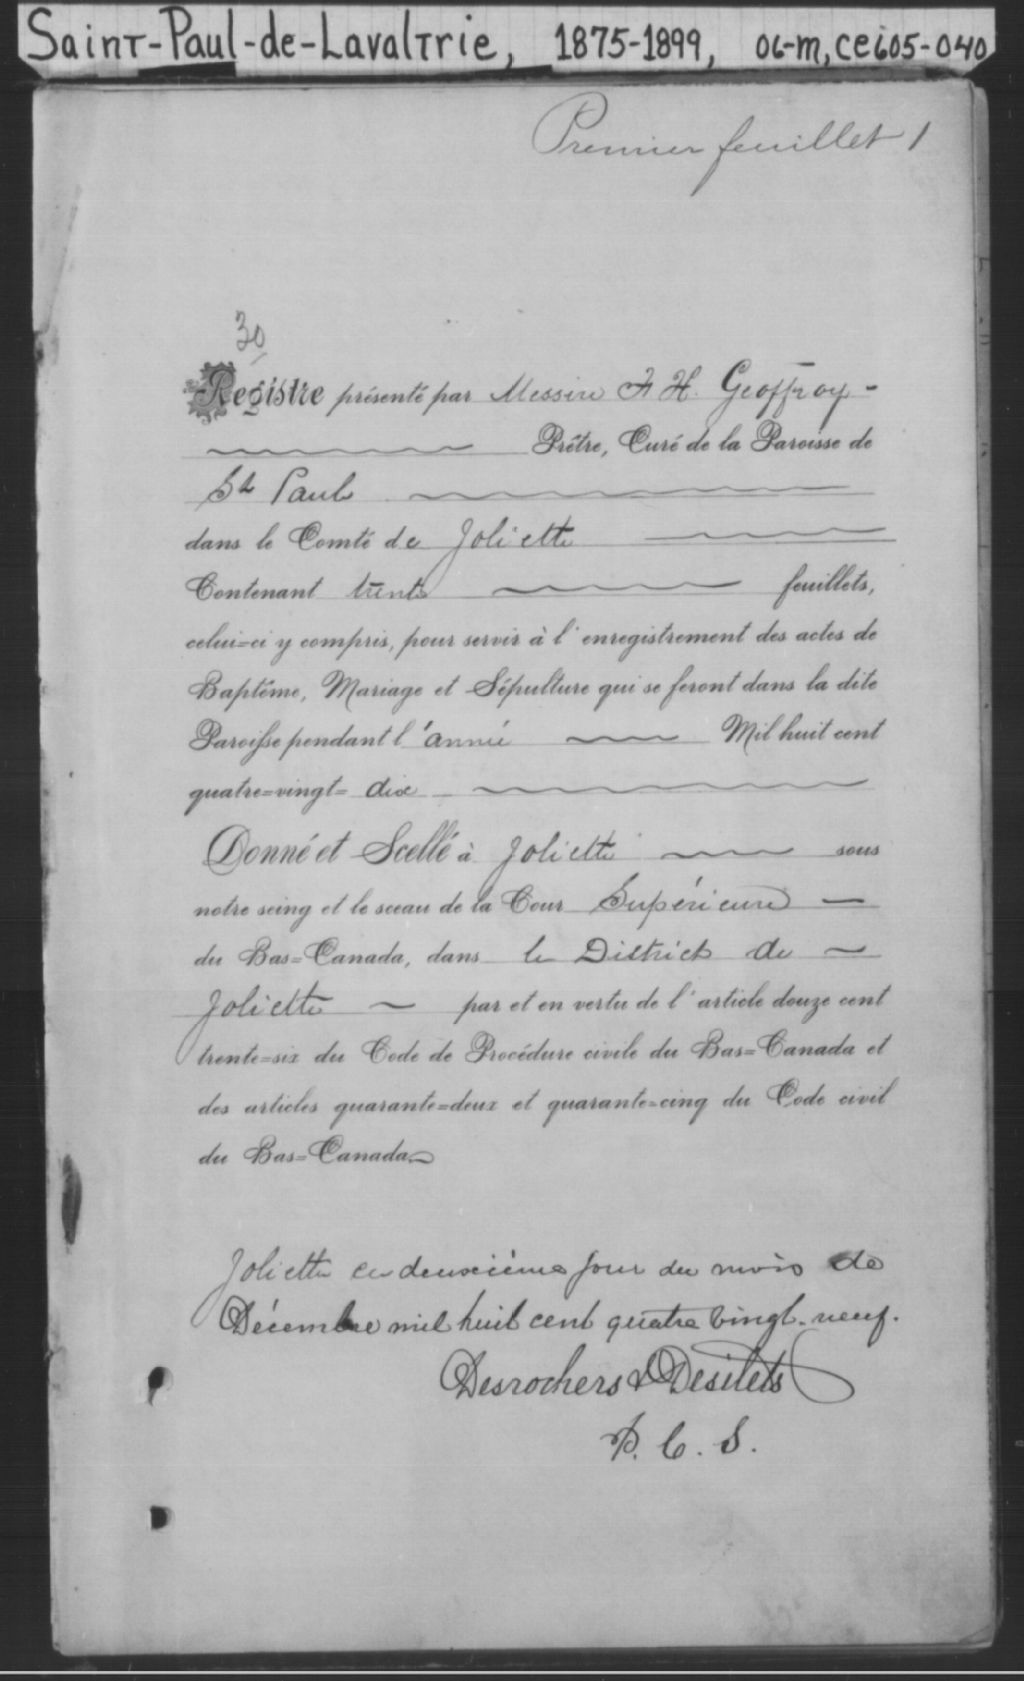 Saint-Paul-de-Lavaltrie, 1875-1899, 06-m, ce605-040
Premier feuillet 1
30
Registre présenté par Messire F H. Geoffroy -
Prêtre, Curé de la Paroisse de
St Paul
dans le Comté de Joliette
Contenant trente feuillets,
celui=ci y compris, pour servir à l'enregistrement des actes de
Baptême, Mariage et Sépulture qui se feront dans la dite
Paroisse pendant l'année Mil huit cent
quatre=vingt= dix
Donné et Scellé à Joliette sous
notre seing et le sceau de la Cour Supérieure —
du Bas=Canada, dans le District de —
Joliette — par et en vertu de l'article douze cent
trente=six du Code de Procédure civile du Bas=Canada et
des articles quarante=deux et quarante=cinq du Code civil
du Bas=Canada.
Joliette ce deuxième jour du mois de
Décembre mil huit cent quatre vingt-neuf.
Desrochers & Desilets
P. C. S.